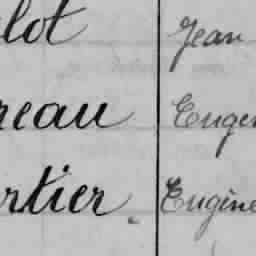 lot Jean
reau Eugèn
rtier Eugène